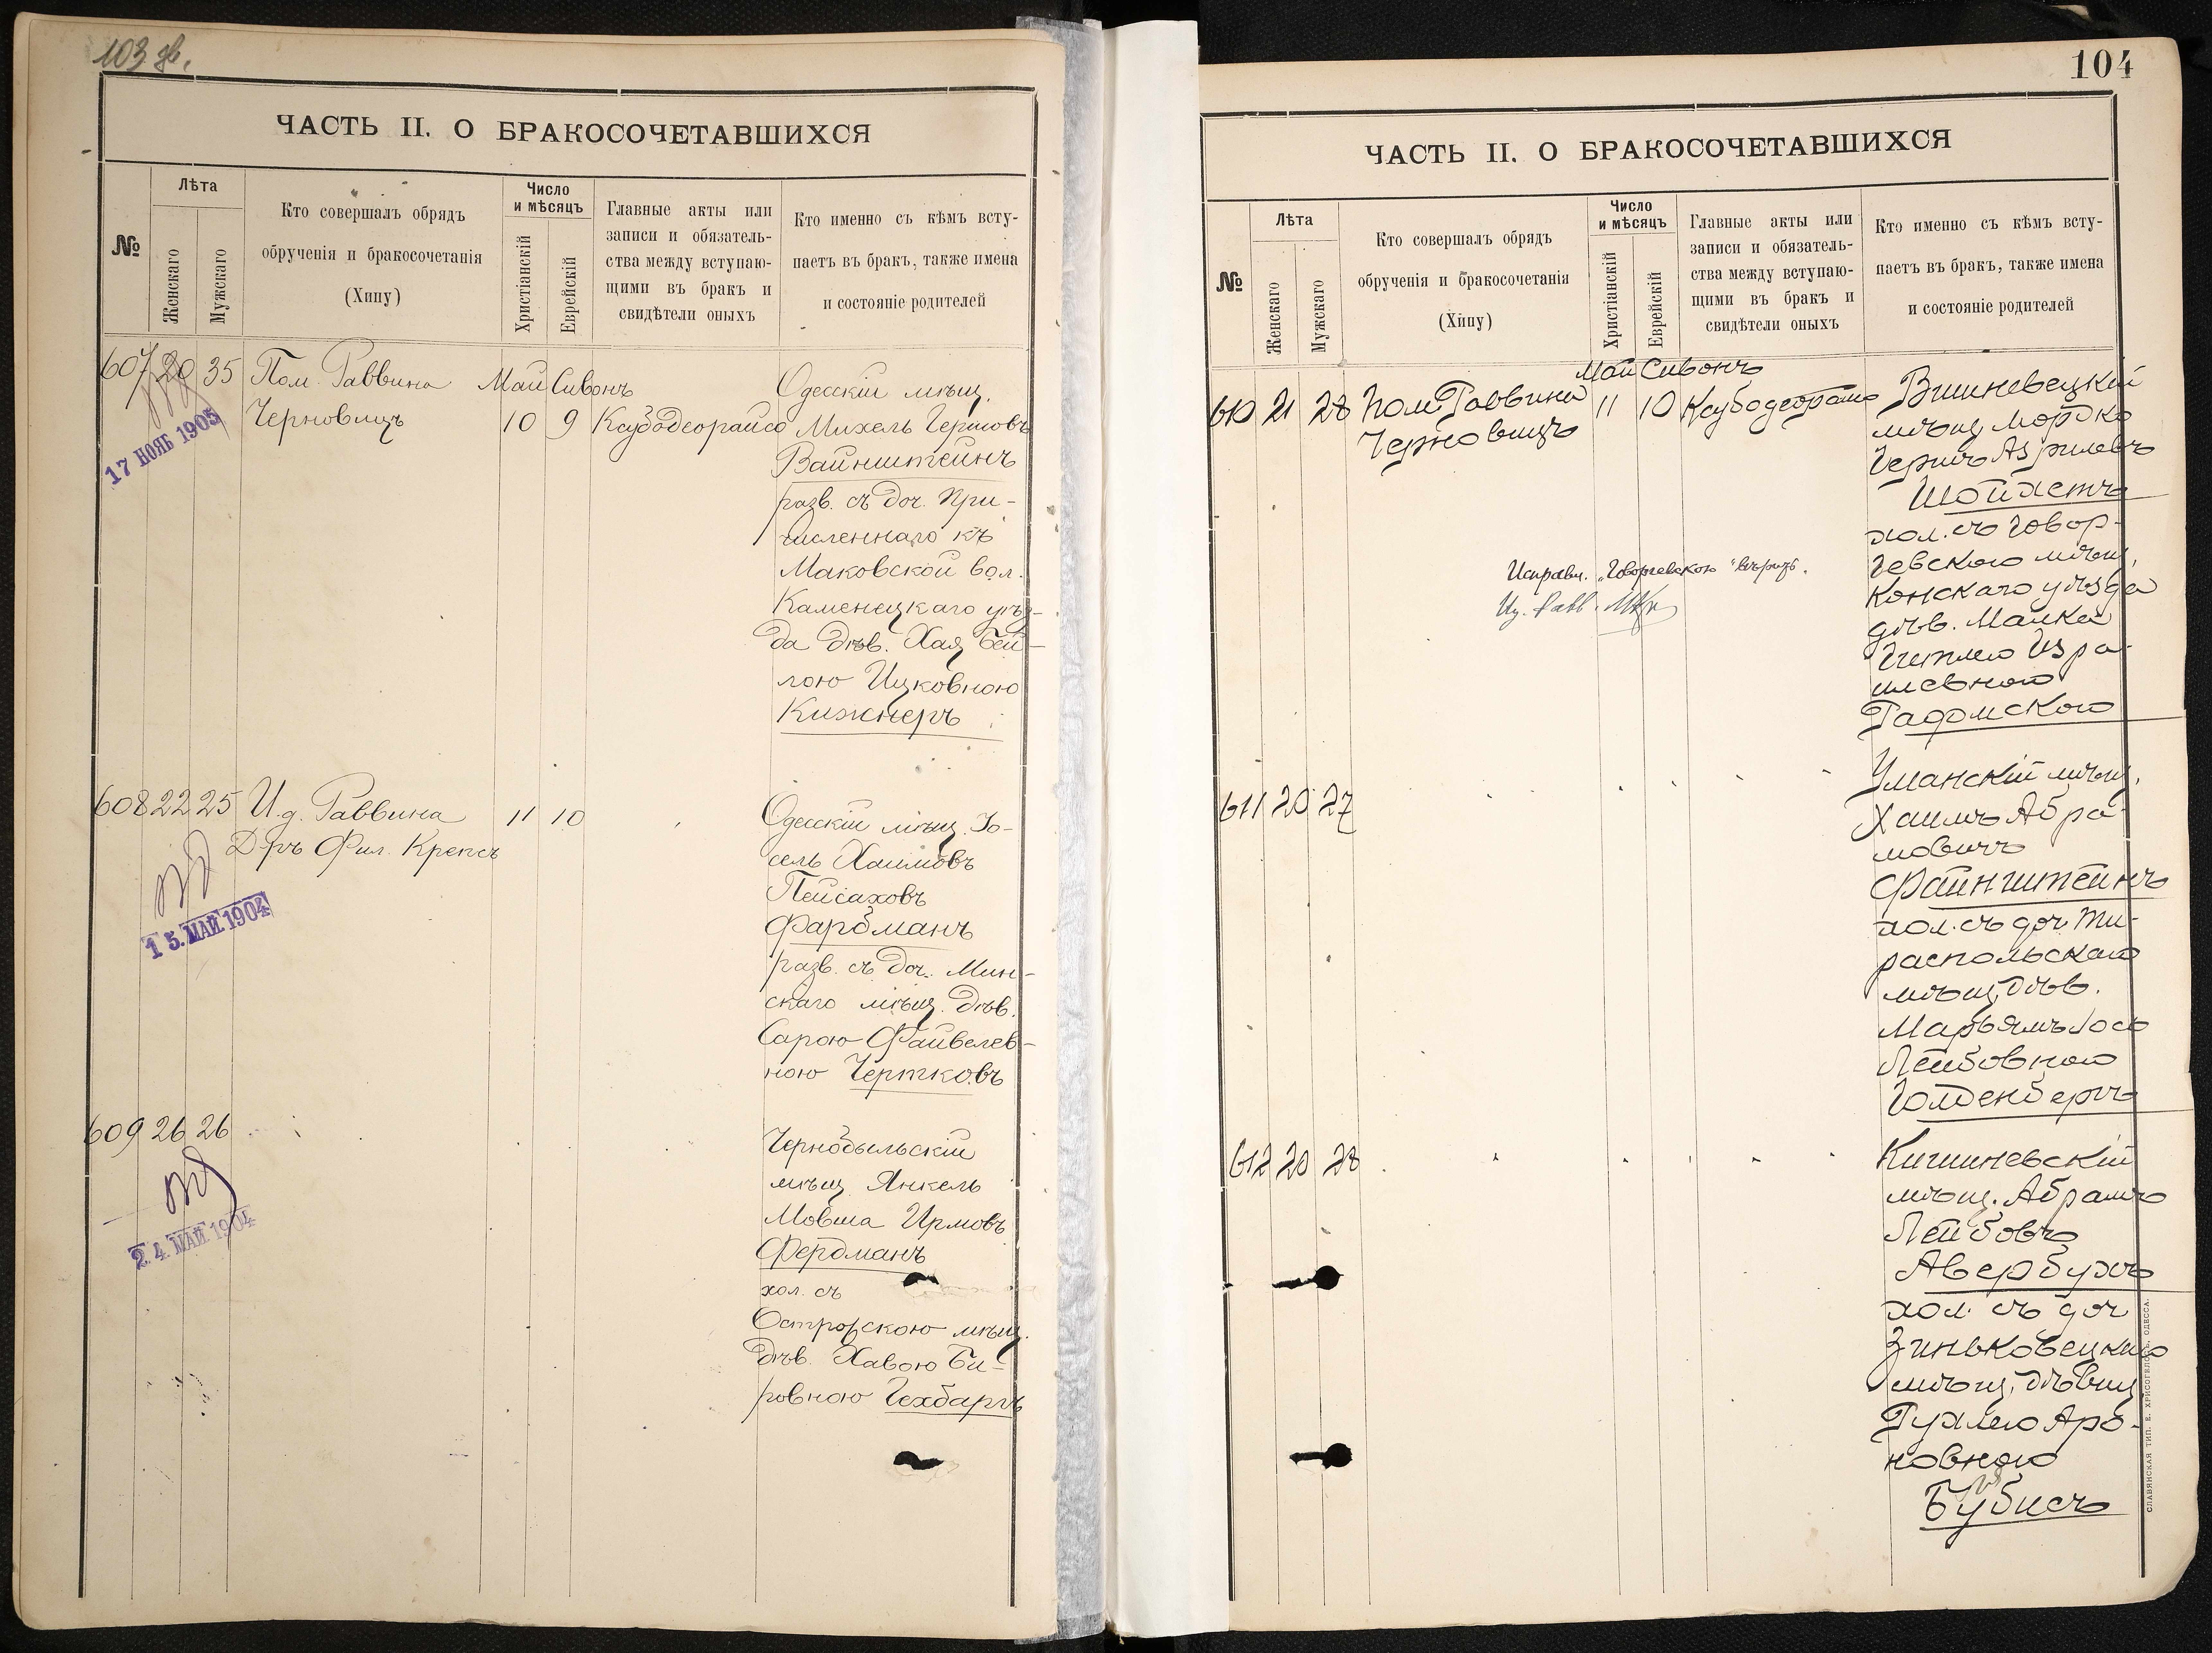 103 об.
ЧАСТЬ II. О БРАКОСОЧЕТАВШИХСЯ
№
Лѣта
Женскаго
Мужскаго
Кто совершалъ обрядъ
обрученія и бракосочетанія
(Хипу)
Число
и мѣсяцъ
Христіанскій
Еврейскій
Главные акты или
записи и обязатель-
ства между вступаю-
щими въ бракъ и
свидѣтели оныхъ
Кто именно съ кѣмъ всту-
паетъ въ бракъ, также имена
и состояніе родителей
607 20 35 Пом. Раввина Май Сивонъ Одесскій мѣщ.
Черновицъ 10 9 Ксубодеорайсо Михель Гершовъ
17 НОЯБ 1905
Вайнштейнъ
разв. съ доч. при-
численнаго къ
Маковской вол.
Каменецкаго уѣз-
да дѣв. Хая Бей-
лою Ицковною
Кижнеръ
608 22 25 И.д. Раввина 11 10 Одесскій мѣщ. Іо-
Д-ръ Фил. Крепсъ сель Хаимовъ
Пейсаховъ
15. МАЙ 1904
Фарбманъ
разв. съ доч. Мин-
скаго мѣщ. дѣв.
Сарою Файвелев-
ною Чертковъ
609 26 26 Чернобыльскій
мѣщ. Янкель
Мовша Ирмовъ
24. МАЙ 1904
Фердманъ
хол. съ
Острожскою мѣщ.
дѣв. Хавою Би-
ровною Гехбаргъ
104
ЧАСТЬ II. О БРАКОСОЧЕТАВШИХСЯ
№
Лѣта
Женскаго
Мужскаго
Кто совершалъ обрядъ
обрученія и бракосочетанія
(Хипу)
Число
и мѣсяцъ
Христіанскій
Еврейскій
Главные акты или
записи и обязатель-
ства между вступаю-
щими въ бракъ и
свидѣтели оныхъ
Кто именно съ кѣмъ всту-
паетъ въ бракъ, также имена
и состояніе родителей
Май Сивонъ
610 21 28 Пом. Раввина 11 10 Ксубодеорайсо Вишневецкій
Черновицъ мѣщ. Мордко
Гершъ Азрилевъ
Шойхетъ
хол. съ Говор-
чевскою мѣщ.
Конскаго уѣзда
дѣв. Малка
Гителю Изра-
илевною
Радомскою
Исправл. „Говорчевскою" вѣрно.
И.д. Равв.
611 20 27 Уманскій мѣщ.
Хаимъ Абра-
мовичъ
Файнштейнъ
хол. съ доч. Ти-
распольскаго
мѣщ. дѣв.
Марьямъ Іося
Лейбовною
Голденбергъ
612 20 28 Кишиневскій
мѣщ. Абрамъ
Лейбовъ
Авербухъ
хол. съ доч
Зиньковецкаго
мѣщ. дѣвиц
Рухлею Аро-
новною
Бубисъ
СЛАВЯНСКАЯ ТИП. Е. ХРИСОГЕЛОСЪ, ОДЕССА.